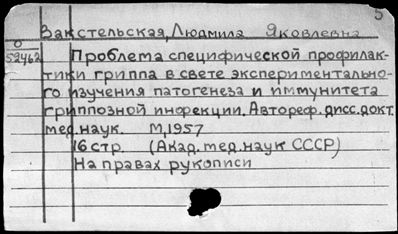 5
Вакстельская, Людмила Яковлевна
О
52462
Проблема специфической профилак-
тики гриппа в свете экспериментально-
го изучения патогенеза и иммунитета
гриппозной инфекции. Автореф. дисс. докт.
мед. наук. М, 1957
16 стр. (Акад. мед. наук СССР)
На правах рукописи